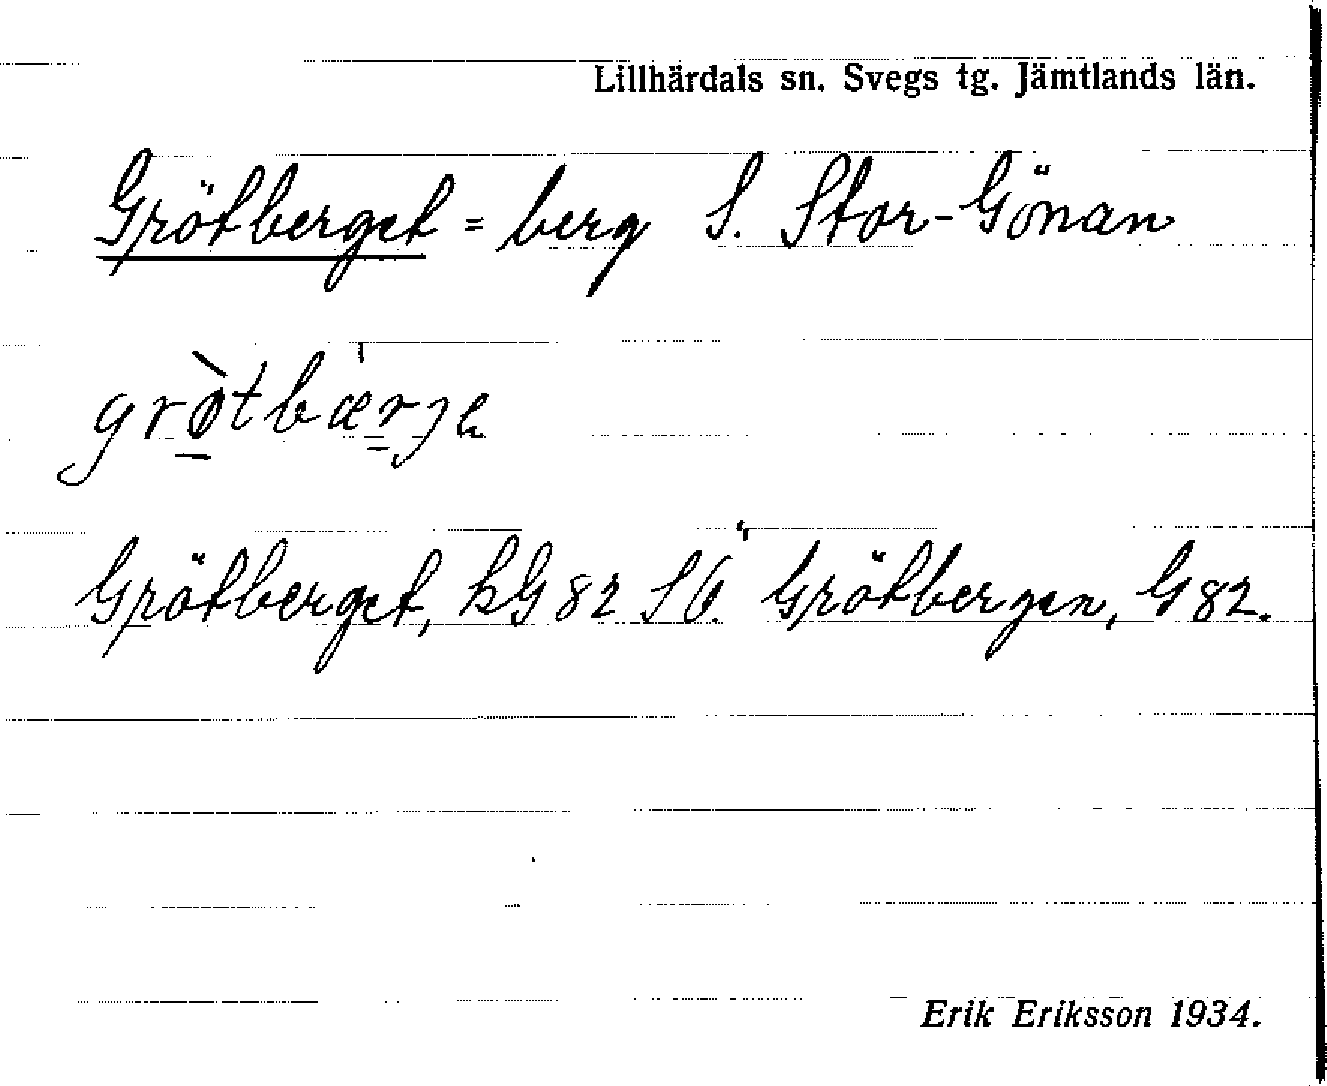 Lillhärdals sn. Svegs tg. Jämtlands län.
Grötberget = berg S. Stor-Gönan
grò̱tbæ̀ṟjə
Grötberget, kG 82 SÖ. Grötbergen, G 82.
Erik Eriksson 1934.